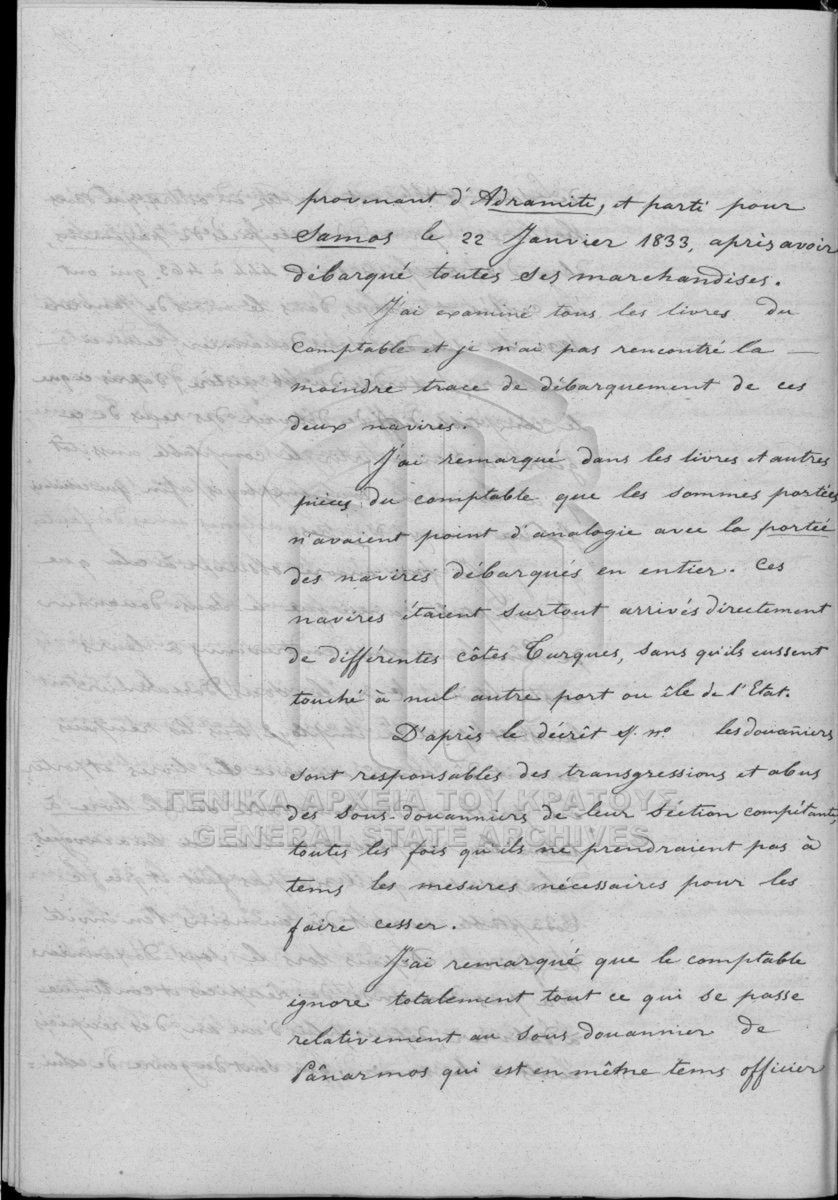 provenant d'Adramite, et parti pour
Samos le 22 Janvier 1833, après avoir
débarqué toutes ses marchandises.
J'ai examiné tous les livres du
comptable et je n'ai pas rencontré la —
moindre trace de débarquement de ces
deux navires.
J'ai remarqué dans les livres et autres
pièces du comptable que les sommes portées
n'avaient point d'analogie avec la portée
des navires débarqués en entier. Ces
navires étaient surtout arrivés directement
de différentes côtes Turques, sans qu'ils eussent
touché à nul autre port ou île de l'Etat.
D'après le décrêt s. no. les douaniers
sont responsables des transgressions et abus
ΓΕΝΙΚΑ ΑΡΧΕΙΑ ΤΟΥ ΚΡΑΤΟΥΣ
des sous-douanniers de leur séction compétante,
GENERAL STATE ARCHIVES
toutes les fois qu'ils ne prendraient pas à
tems les mesures nécessaires pour les
faire cesser.
J'ai remarqué que le comptable
ignore totalement tout ce qui se passe
relativement au sous-douannier de
Pânarmos qui est en même tems officier